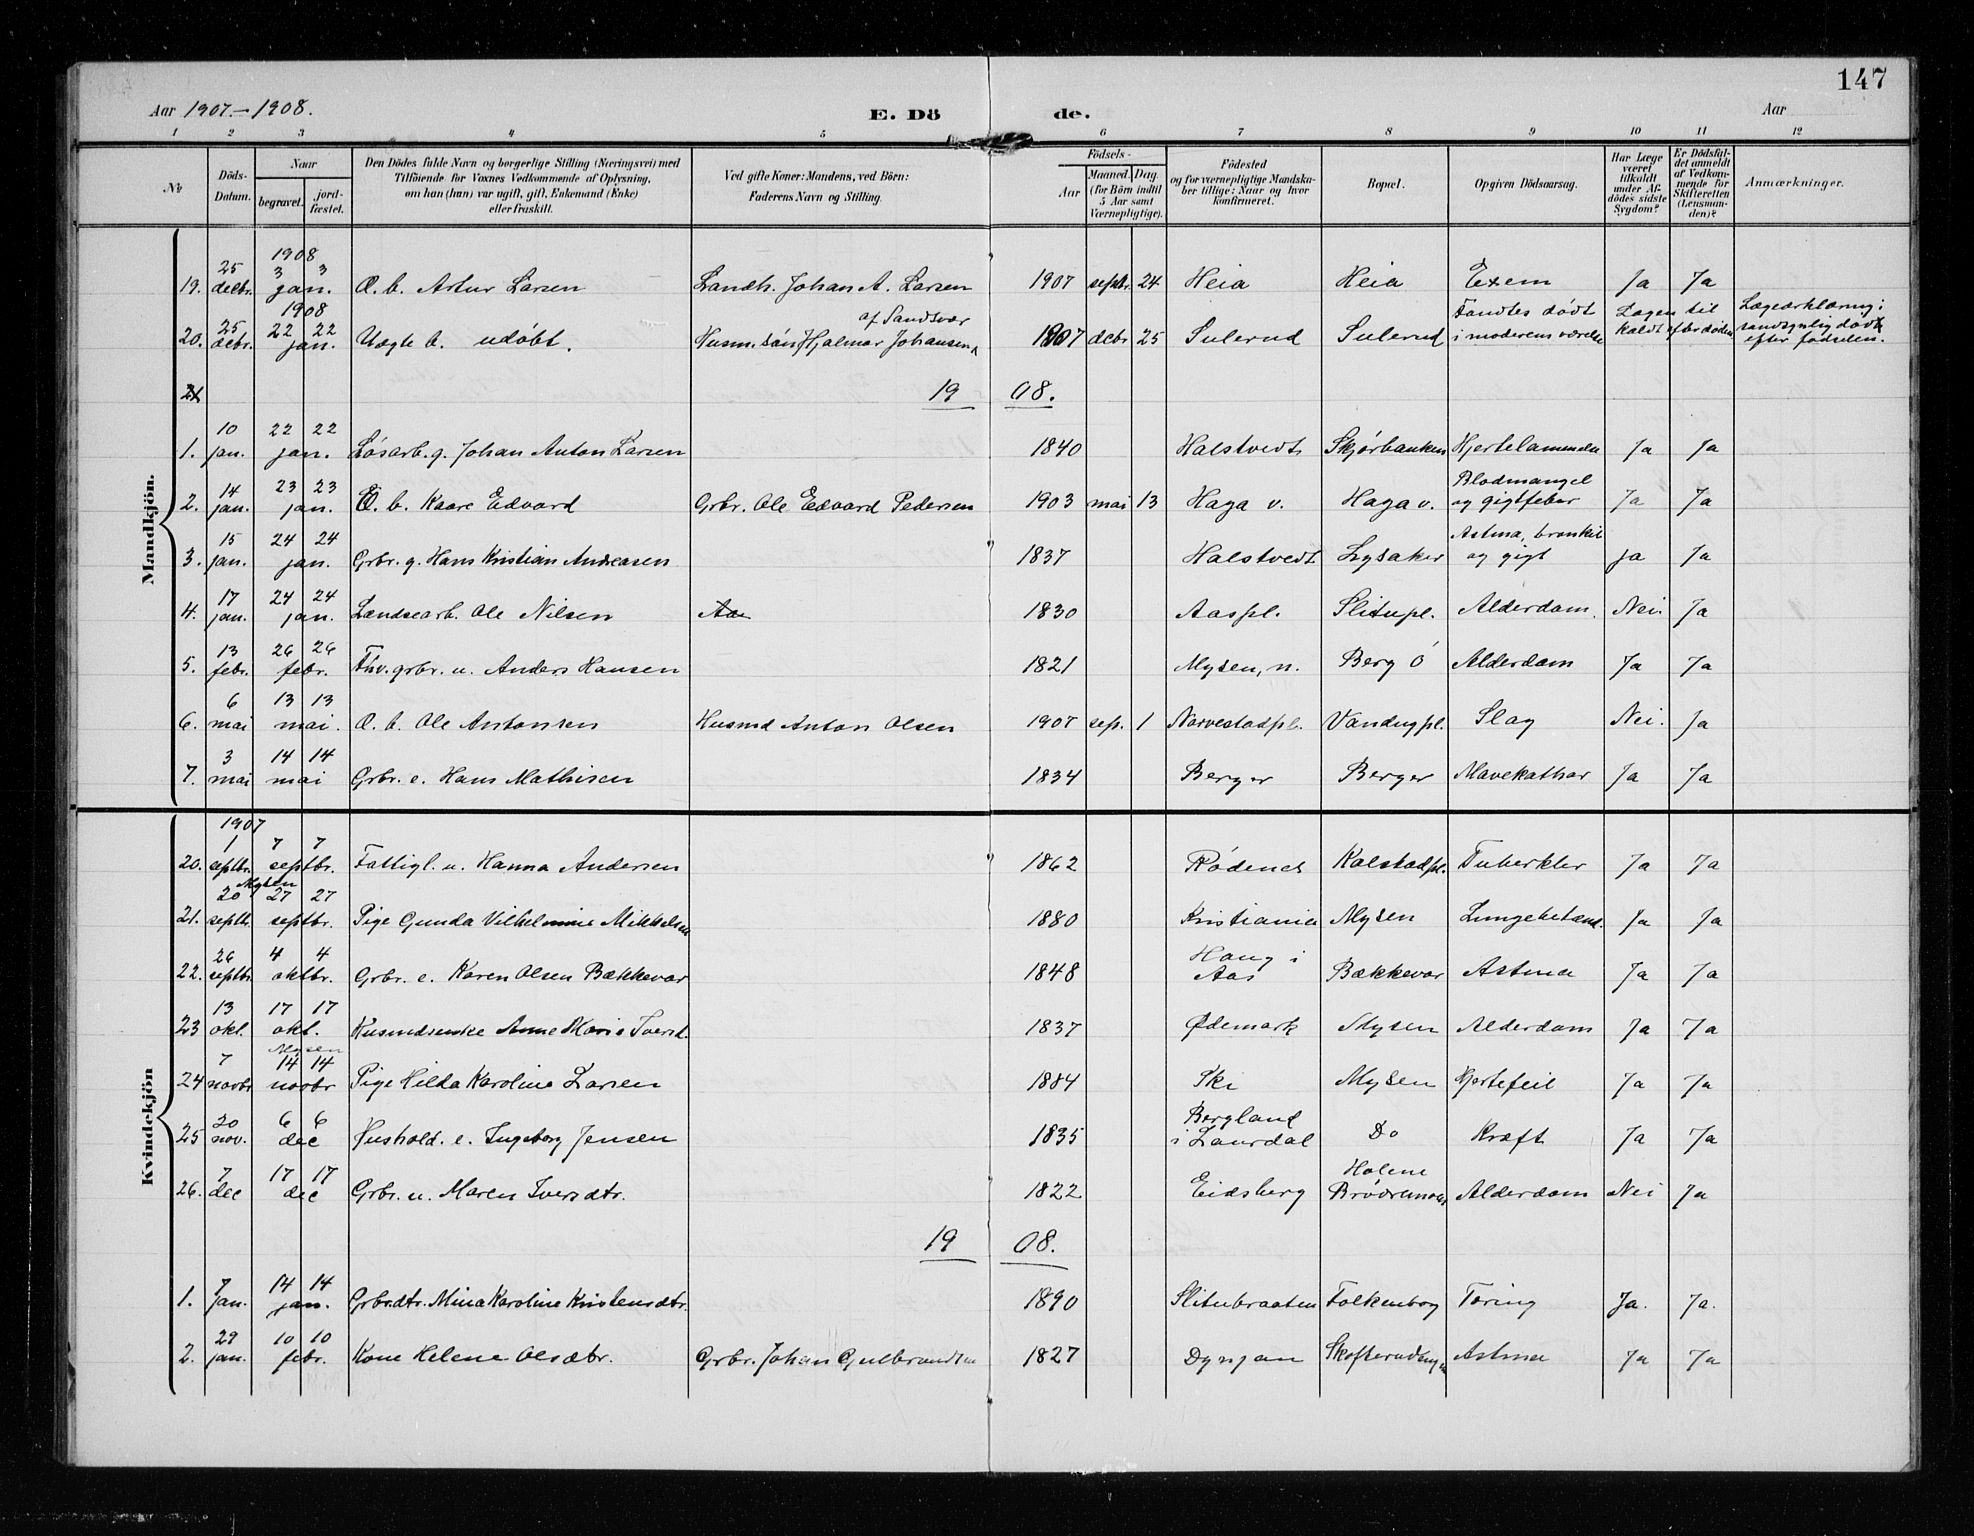 147
Aar 1907.-1908.
E. Dö de.
Aar
1 2 3 4 5 6 7 8 9 10 11 12
No
Döds-Datum.
Naar
begravet.
jord-fæstet.
Den Dödes fulde Navn og borgerlige Stilling (Næringsvei) med
Tilföiende for Voxnes Vedkommende af Oplysning,
om han (hun) var ugift, gift, Enkemand (Enke)
eller fraskilt.
Ved gifte Koner: Mandens, ved Börn:
Faderens Navn og Stilling.
Födsels-
Aar
Maaned. Dag.
(for Börn indtil
5 Aar samt
Værnepligtige).
Födested
og for værnepligtige Mandska-
ber tillige: Naar og hvor
konfirmeret.
Bopæl.
Opgiven Dödsaarsag.
Har Læge
været
tilkaldt
under Af-
dödes sidste
Sygdom?
Er Dödsfal-
det anmeldt
af Vedkom-
mende for
Skifteretten
(Lensman-
den)?
Anmærkninger.
Mandkjön.
1908
19. 25 decbr. 3 3 jan. Æ. b. Artur Larsen Landh. Johan A. Larsen 1907 septr. 24 Heia Heia Exem Ja Ja
1908
20. 25 decbr. 22 22 jan. Uægte b. udøbt. Husm. søn Hjalmar Johansen af Sandsvær 1907 decbr 25 Sulerud Sulerud Fandtes dødt i moderens værelse Lægen til kaldt efter døden Lægeærklæring: sandsynlig død efter fødselen.
21
19 08.
1. 10 jan. 22 22 jan. Løsarb. g. Johan Anton Larsen 1840 Halstvedt Skjørbanken Hjertelammelse Ja Ja
2. 14 jan. 23 23 jan. Æ. b. Kaare Edvard Grbr. Ole Edvard Pedersen 1903 mai 13 Haga v. Haga v. Blodmangel og gigtfeber Ja Ja
3. 15 jan. 24 24 jan. Grbr. g. Hans Kristian Andreasen 1837 Halstvedt Lysaker Astma, bronkit og gigt Ja Ja
4. 17 jan. 24 24 jan. Lændsearb. Ole Nilsen Aa 1830 Aaspl. Slitupl. Alderdom. Nei. Ja
5. 13 febr. 26 26 febr. Fhv. grbr. u. Anders Hansen 1821 Mysen, n. Berg Ø Alderdom Ja Ja
6. 6 mai 13 13 mai. Æ. b. Ole Antonsen Husmd Anton Olsen 1907 sep. 1 Narvestadpl. Vandugpl. Slag Nei. Ja
7. 3 mai 14 14 mai Grbr. e. Hans Mathisen 1834 Berger Berger Mavekathar Ja Ja
Kvindekjön
1907
20. 1 septbr. 7 7 septbr. Fattigl. u. Hanna Andersen 1862 Rødenes Kolstadpl. Tuberkler Ja Ja
Mysen
21. 20 septbr. 27 27 septbr. Pige Gunda Vilhelmine Mikkelsen 1880 Kristiania Mysen Lungebetænd. Ja Ja
22. 26 septbr. 4 4 oktbr. Grbr. e. Karen Olsen Bækkevar 1848 Haug i Aas Bækkevar Astma Ja Ja
23 13 okt. 17 17 okt. Husmdsenke Anne Marie Iversd. 1837 Ødemark Mysen Alderdom Ja Ja
Mysen
24 7 novbr 14 14 novbr Pige Hilda Karoline Larsen 1884 Ski Mysen Hjertefeil Ja Ja
25 20 nov. 6 6 dec Hushold. e. Ingeborg Jensen 1835 Bergland i Laurdal Do Kræft Ja Ja
26. 7 dec 17 17 dec Grbr. u. Maren Iversdtr. 1822 Eidsberg Holene Alderdom Nei Ja
19 08.
1. 7 Jan. 14 14 jan. Grbrdtr. Mina Karoline Kristensdtr. 1890 Slitubraaten Folkenborg Tæring Ja. Ja.
2. 29 jan. 10 10 febr. Kone Helene Olsdtr. Grbr. Johan Gulbrandsen 1827 Dynjan Astma Ja Ja